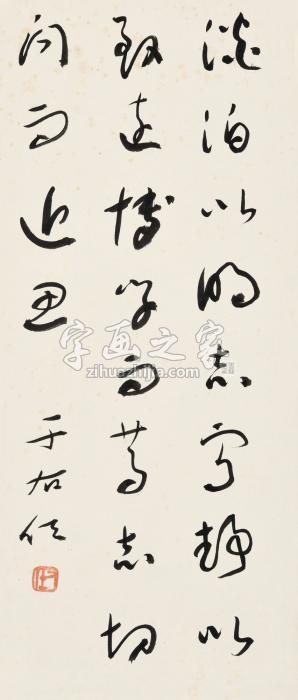 澹泊以明志寧静以
致遠博学而篤志切
问而近思
于右任
字画之家
zihuazhijia.com